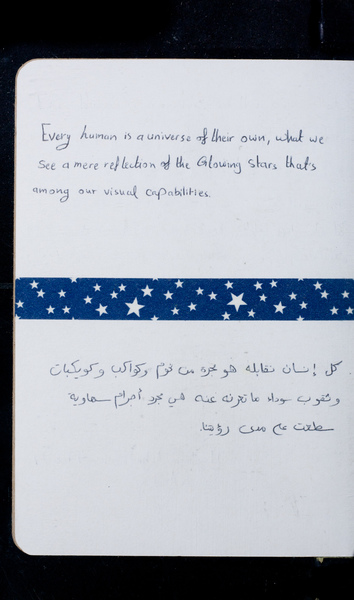 Every human is a universe of their own, what we
see a mere reflection of the Glowing stars that's
among our visual capabilities.
كل إنسان نقابله هو مجرة من نجوم وكواكب وكويكبات
وثقوب سوداء ما نعرفه عنه هي مجرد أجرام سماوية
سطعت على مدى رؤيتنا.